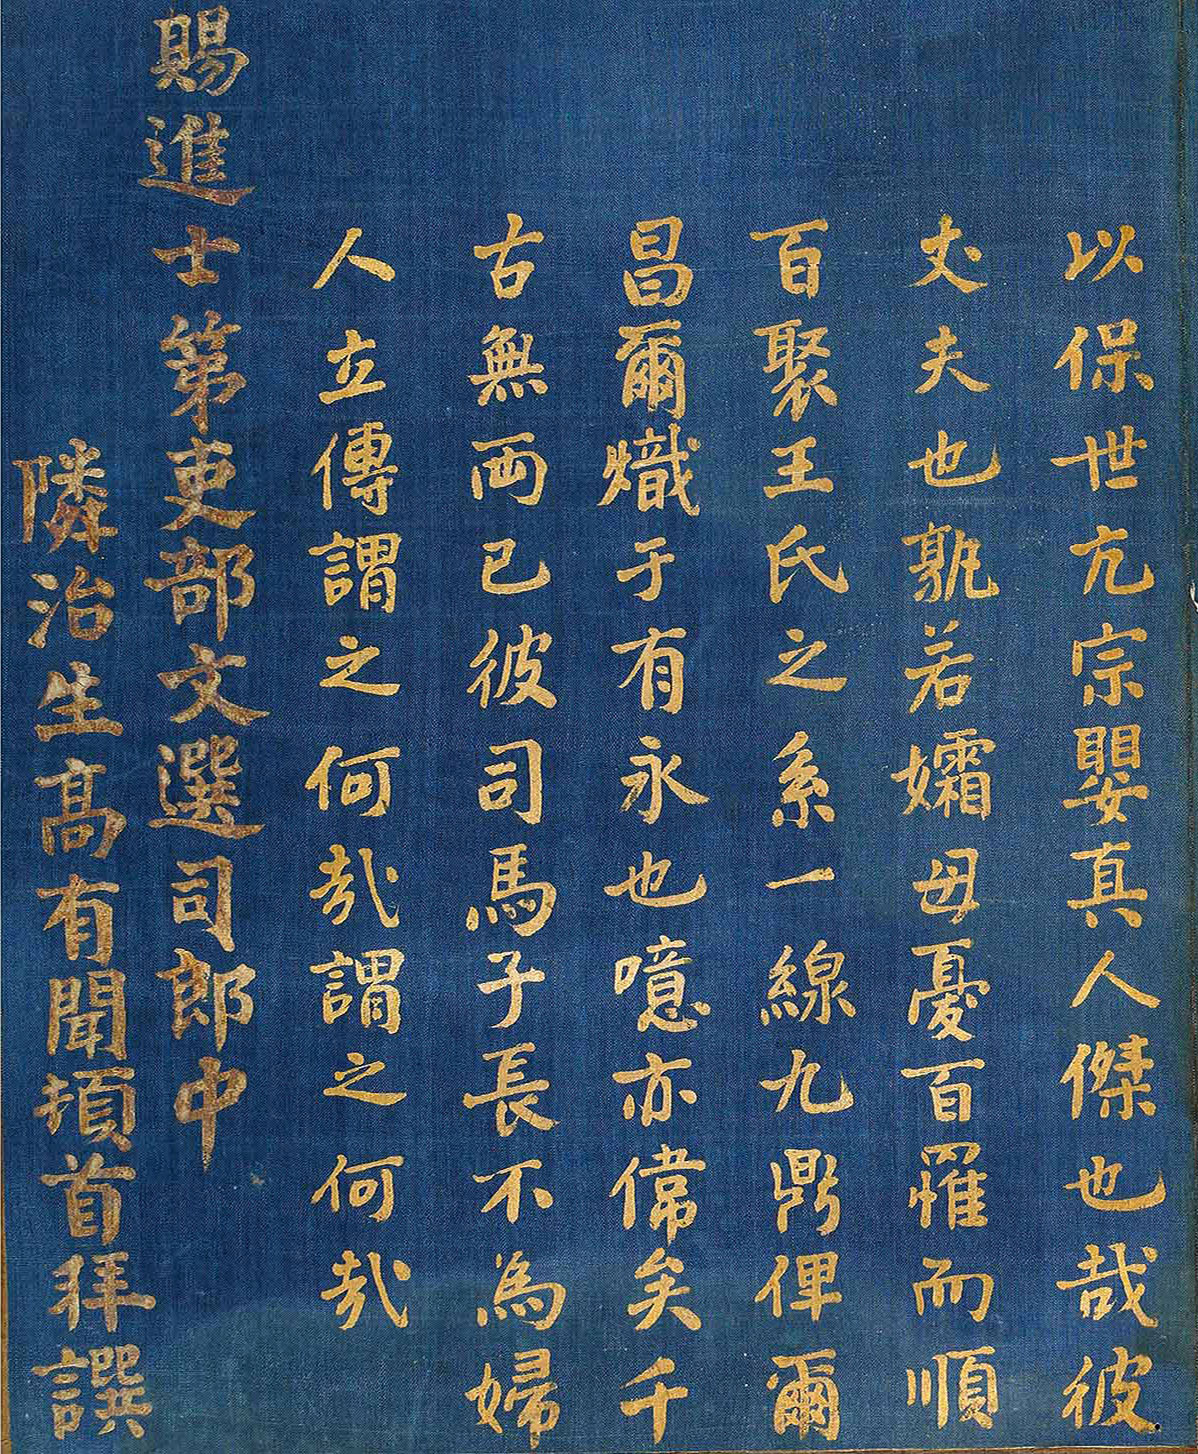 以保世亢宗嬰真人傑也哉彼
丈夫也孰若孀母憂百罹而順
百聚王氏之系一線九鼎俾爾
昌爾熾于有永也噫亦偉矣千
古無両已彼司馬子長不為婦
人立傳謂之何哉謂之何哉
賜進士第吏部文選司郎中
隣治生髙有聞頓首拜譔